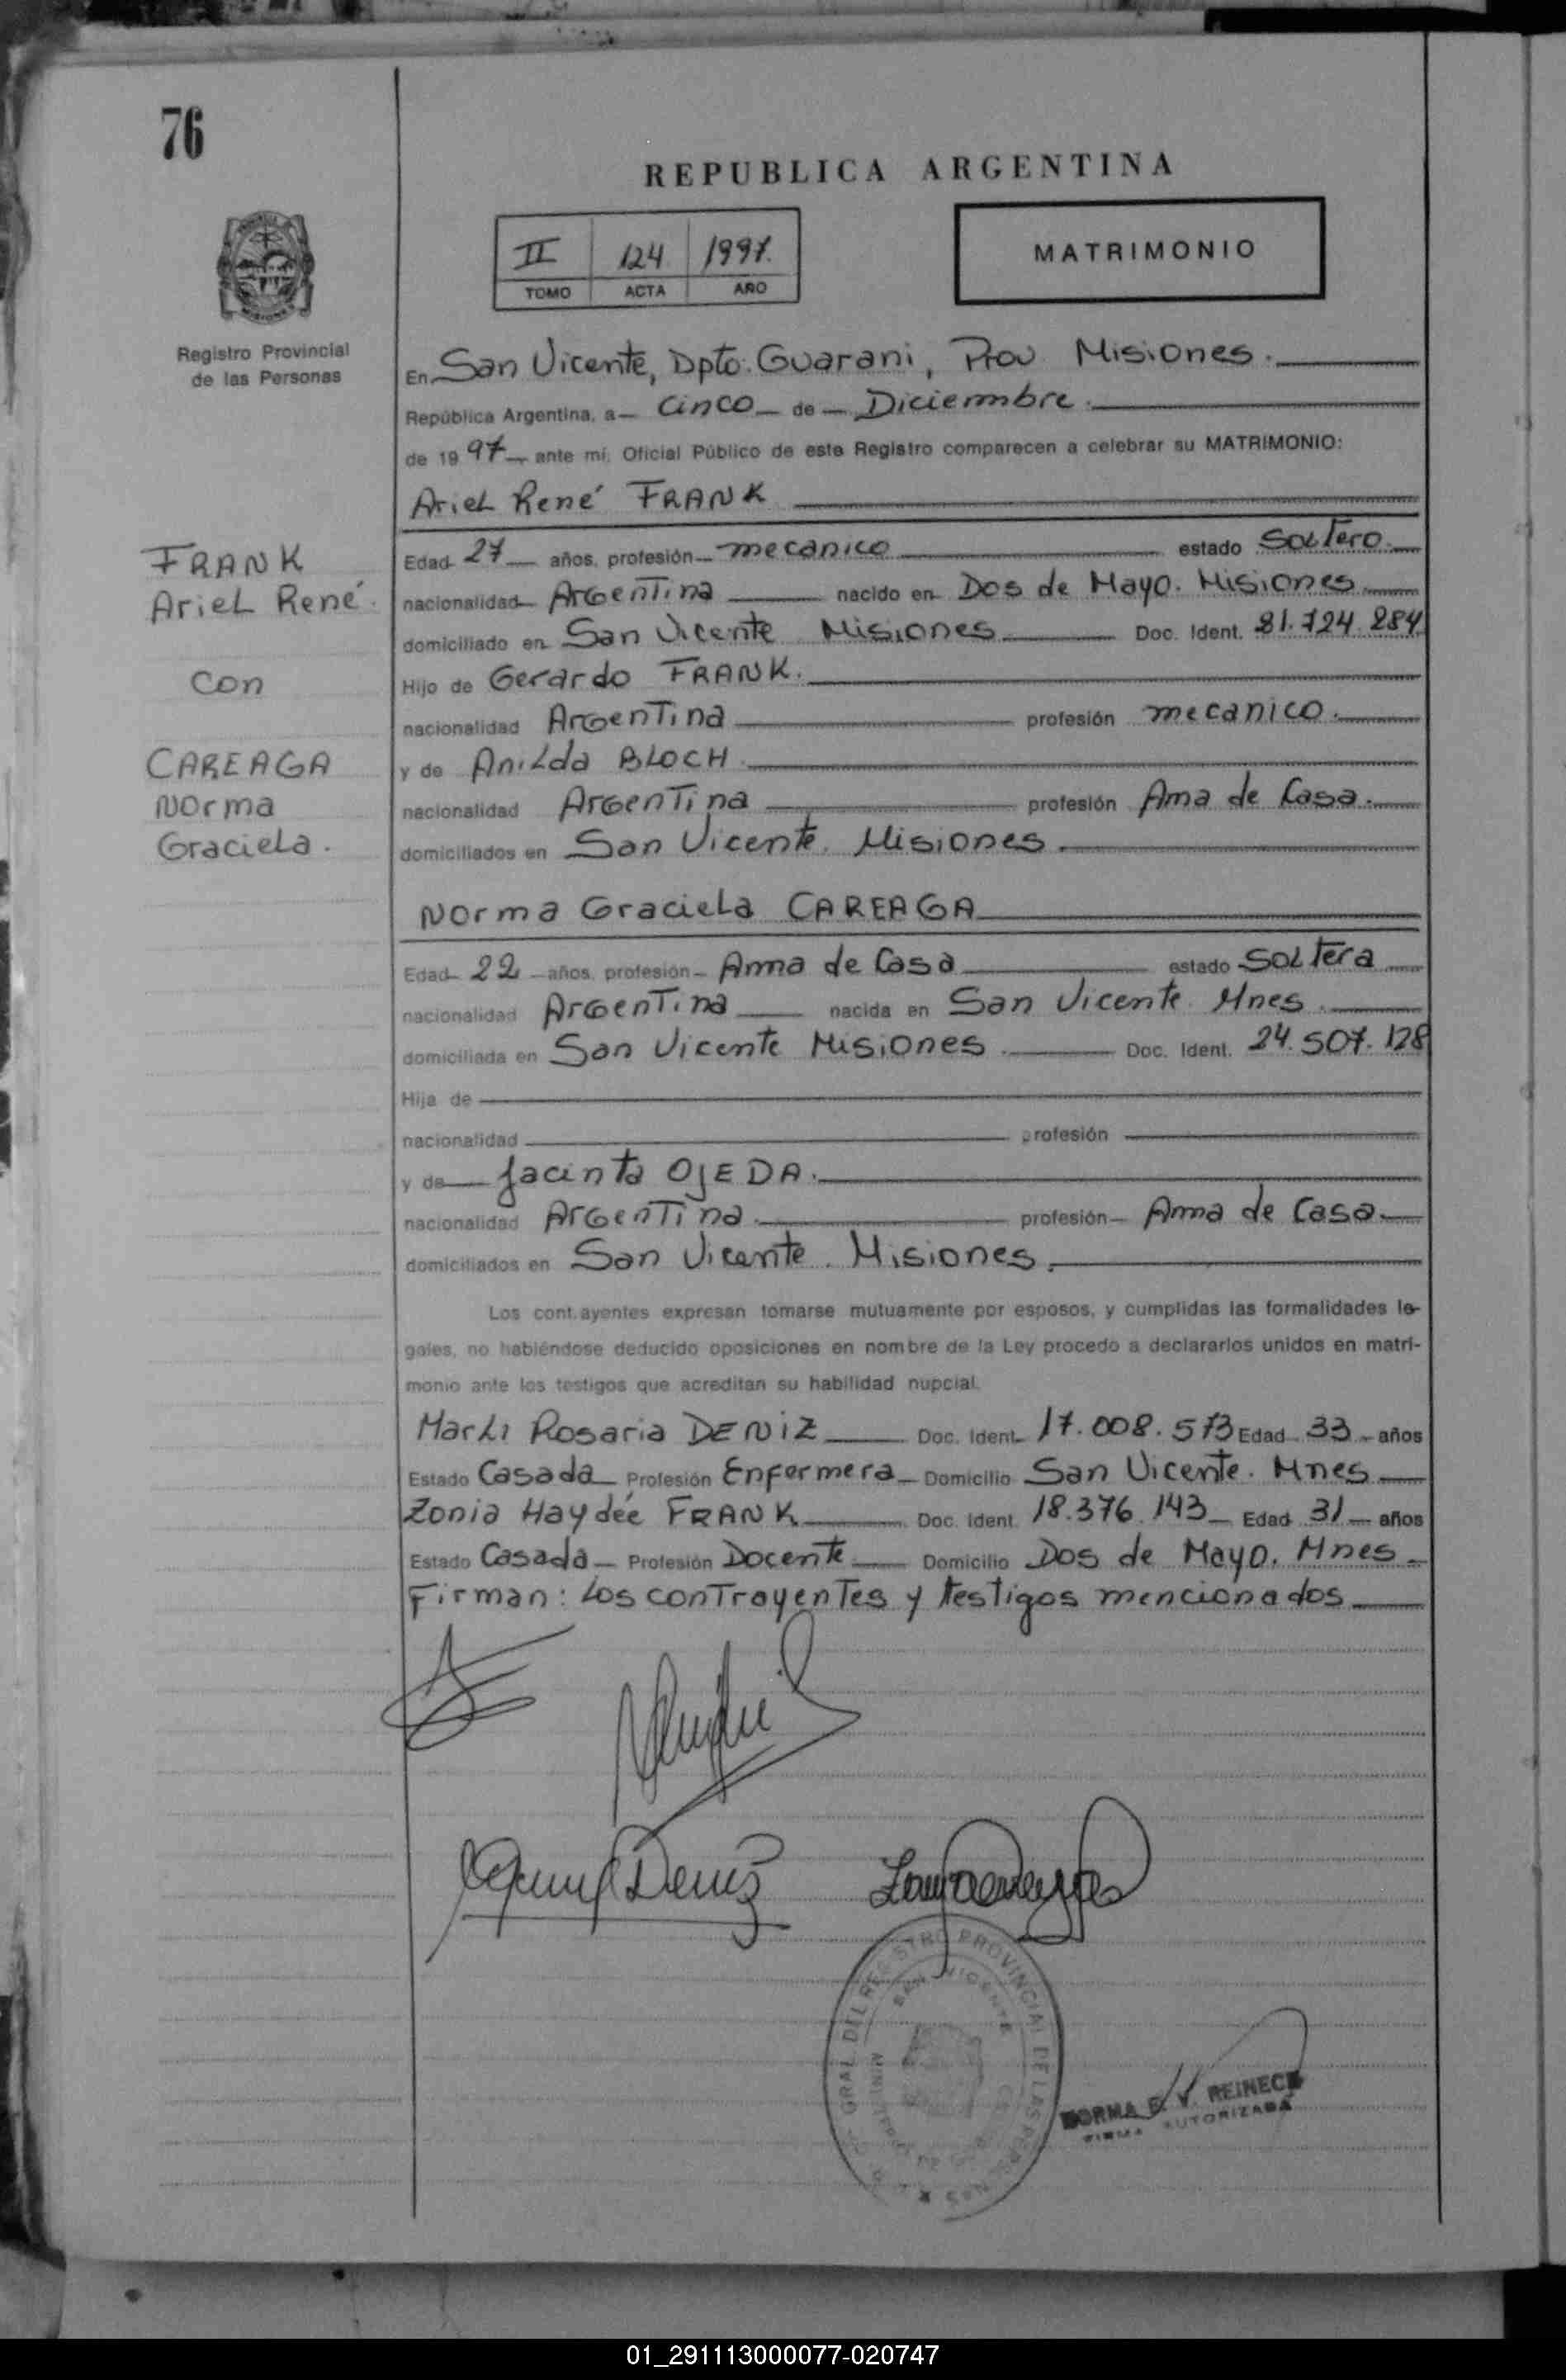 76
REPUBLICA ARGENTINA
II 124 1997.
TOMO ACTA AÑO
MATRIMONIO
Registro Provincial
de las Personas
En San Vicente, Dpto. Guarani, Prov Misiones.
República Argentina, a cinco de Diciembre.
de 19 97 ante mí, Oficial Público de este Registro comparecen a celebrar su MATRIMONIO:
Ariel René FRANK
FRANK
Ariel René.
con
CAREAGA
Norma
Graciela.
Edad 27 años, profesión mecanico estado Soltero.
nacionalidad Argentina nacido en Dos de Mayo. Misiones
domiciliado en San Vicente Misiones Doc. Ident. 21.724.284
Hijo de Gerardo FRANK.
nacionalidad Argentina profesión mecanico.
y de Anilda BLOCH.
nacionalidad Argentina profesión Ama de Casa.
domiciliados en San Vicente. Misiones.
Norma Graciela CAREAGA
Edad 22 años, profesión Ama de Casa estado Soltera
nacionalidad Argentina nacida en San Vicente. Mnes.
domiciliada en San Vicente Misiones. Doc. Ident. 24.507.128
Hija de
nacionalidad profesión
y de Jacinta OJEDA.
nacionalidad Argentina. profesión Ama de Casa.
domiciliados en San Vicente. Misiones.
Los cont.ayentes expresan tomarse mutuamente por esposos, y cumplidas las formalidades le-
gales, no habiéndose deducido oposiciones en nombre de la Ley procedo a declararlos unidos en matri-
monio ante los testigos que acreditan su habilidad nupcial.
Marli Rosaria DENIZ Doc. Ident. 17.008.573 Edad 33 años
Estado Casada Profesión Enfermera Domicilio San Vicente. Mnes
Zonia Haydée FRANK Doc. Ident. 18.376.143 Edad 31 años
Estado Casada Profesión Docente Domicilio Dos de Mayo. Mnes
Firman: los contrayentes y testigos mencionados
Deniz
GRAL. DEL REGISTRO PROVINCIAL DE LAS PERSONAS
SAN VICENTE
NORMA E. V. REINECK
FIRMA AUTORIZADA
01_291113000077-020747